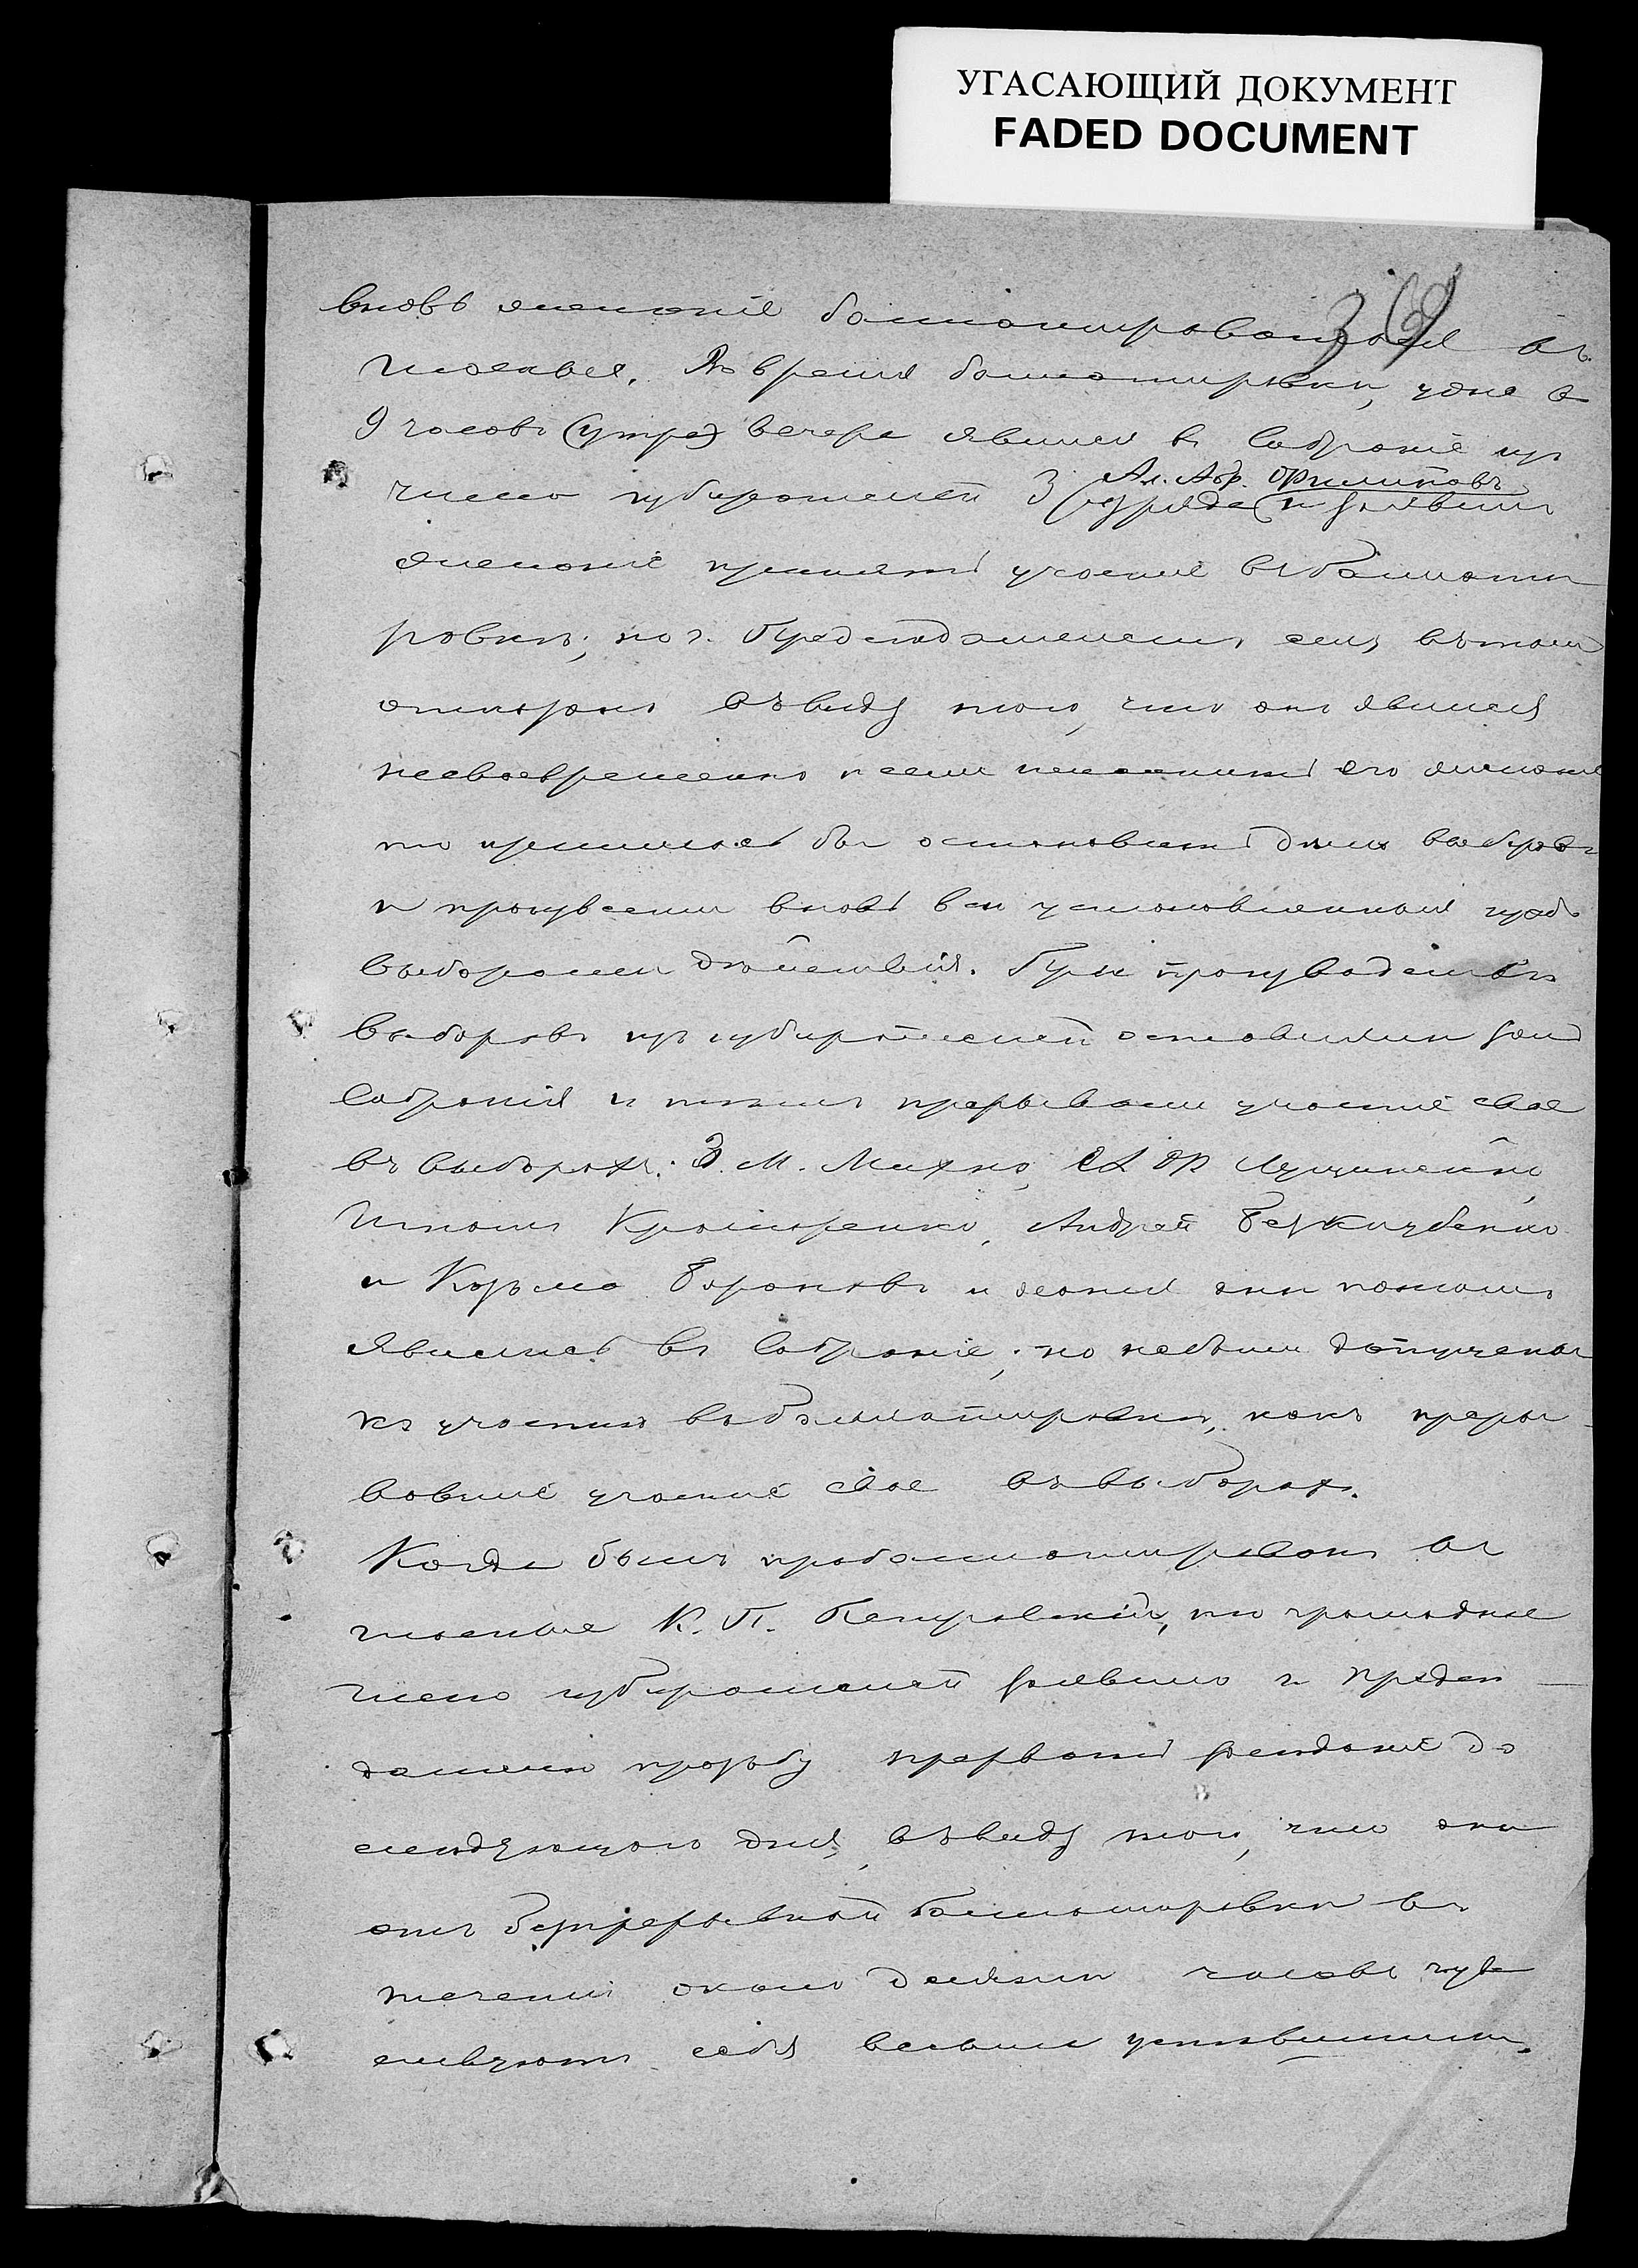 УГАСАЮЩИЙ ДОКУМЕНТ
FADED DOCUMENT
вновь желаніе баллотироваться въ
гласные. Во время баллотировки, уже въ
9 часовъ (утра) вечера явился въ Собраніе изъ
Ал. Абр. Филиповъ
числа избирателей 3 разряда и заявилъ
желаніе принять участіе въ баллоти
ровкѣ; но г. Предсѣдателемъ ему въ томъ
отказано въ виду того, что онъ явился
несвоевременно и если исполнить его желаніе
то пришлось бы остановить дѣло выборовъ
и произвести вновь все установленныя предъ
выборами дѣйствія. При производствѣ
выборовъ изъ избирателей оставляли залъ
Собранія и тѣмъ прерывали участіе свое
въ выборахъ: З. М. Махно,
Игнатъ Андрей
и Козьма Бороновъ и желая они потомъ
явились въ Собраніе; но не были допущены
къ участію въ баллотировкѣ, какъ преры
вавшіе участіе свое въ выборахъ.
Когда былъ пробаллотированъ въ
гласные К. П. Петровскій, то громадное
число избирателей заявило г. Предсѣ
дателю прозьбу прервать засѣданіе до
слѣдующаго дня, въ виду того, что они
отъ безпрерывной баллотировки въ
теченіи около десяти часовъ чув
ствуютъ себя весьма уставшими.